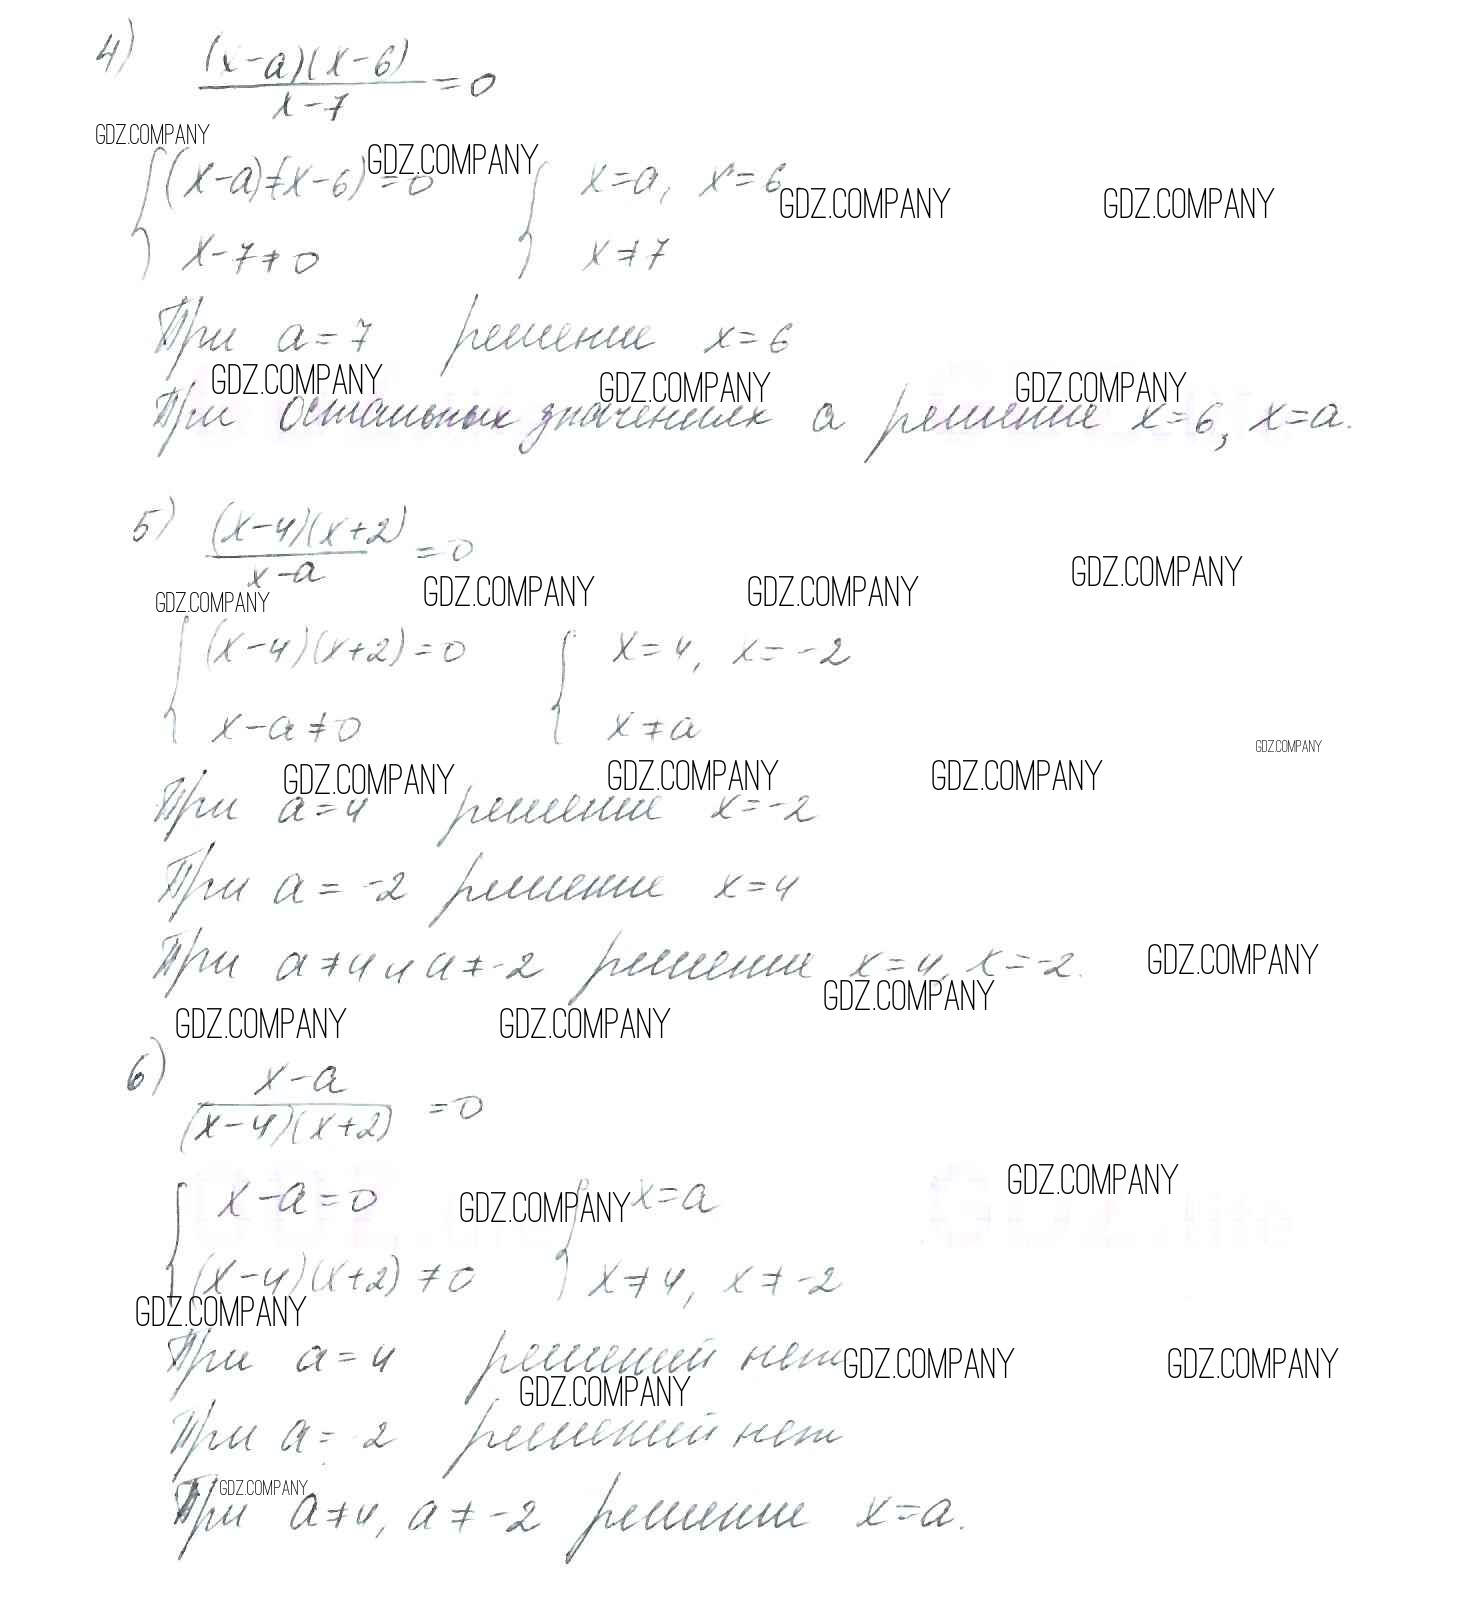 4) (x-a)(x-6)
x-7 =0
GDZ.COMPANY
GDZ.COMPANY
(x-a)(x-6)=0 x=a, x=6
GDZ.COMPANY GDZ.COMPANY
x-7≠0 x≠7
При a=7 решение x=6
GDZ.COMPANY GDZ.COMPANY GDZ.COMPANY
При остальных значениях a решение x=6, x=a.
5) (x-4)(x+2)
x-a =0
GDZ.COMPANY GDZ.COMPANY GDZ.COMPANY GDZ.COMPANY
(x-4)(x+2)=0 x=4, x=-2
x-a≠0 x≠a
GDZ.COMPANY
GDZ.COMPANY GDZ.COMPANY GDZ.COMPANY
При a=4 решение x=-2
При a=-2 решение x=4
При a≠4 и a≠-2 решение x=4, x=-2.
GDZ.COMPANY
GDZ.COMPANY GDZ.COMPANY GDZ.COMPANY
6) x-a
(x-4)(x+2) =0
GDZ.COMPANY
x-a=0 x=a
GDZ.COMPANY
(x-4)(x+2)≠0 x≠4, x≠-2
GDZ.COMPANY
При a=4 решений нет
GDZ.COMPANY GDZ.COMPANY GDZ.COMPANY
При a=-2 решений нет
GDZ.COMPANY
При a≠4, a≠-2 решение x=a.